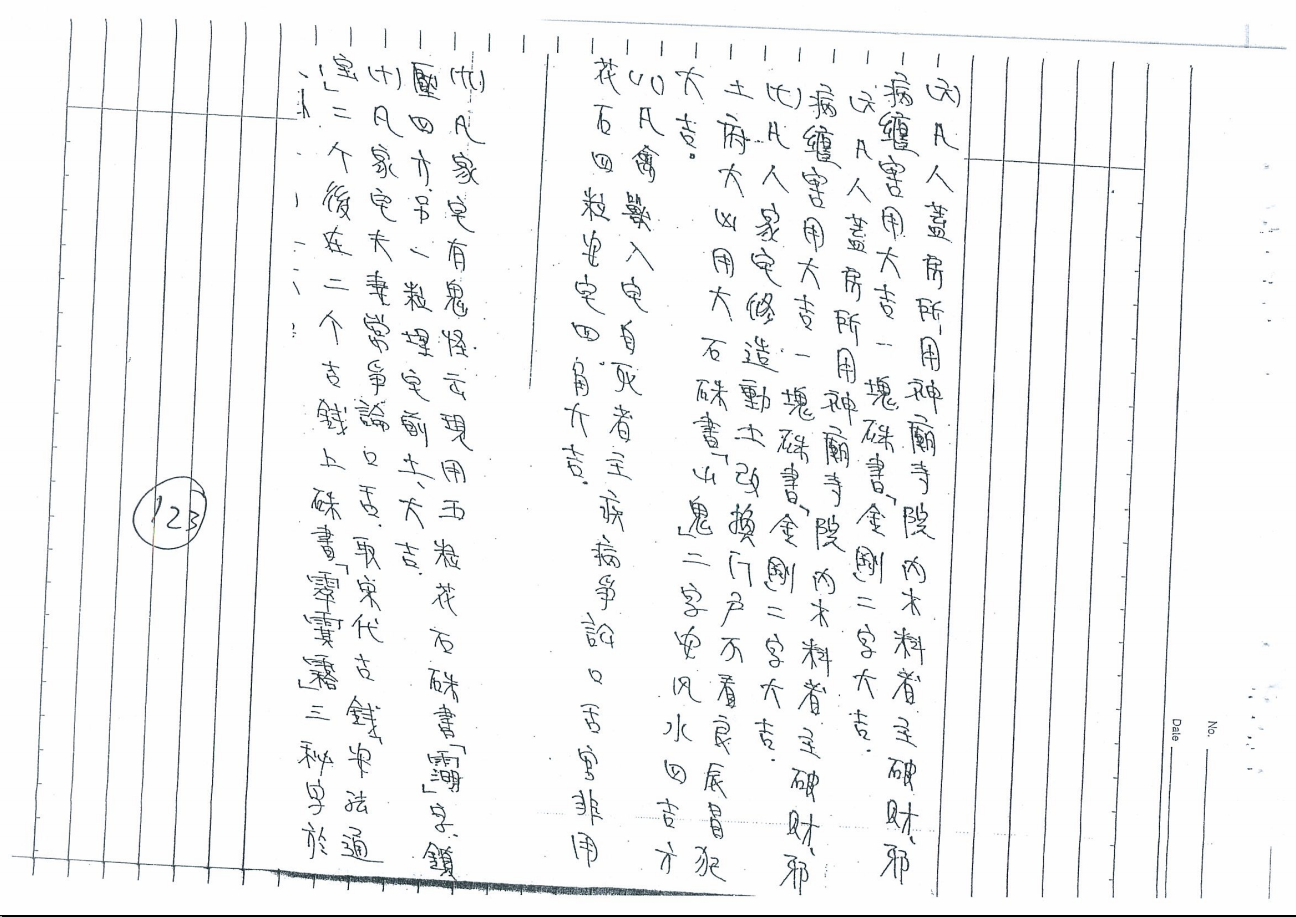 (六)凡人蓋房所用神廟寺院內木料者主破財、邪
病纏害用大吉一塊硃書「金剛二字大吉.
(六)凡人蓋房所用神廟寺院內木料者主破財、邪
病纏害用大吉一塊硃書「金剛二字大吉.
(七)凡人家宅修造動土改換门户不看良辰冒犯
土府大凶用大石硃書「山鬼」二字安风水四吉方
大吉.
(八)凡禽獸入宅自死者主疾病爭訟口舌害非用
花石四粒安宅四角大吉.
(九)凡家宅有鬼怪云現用五粒花石硃書「霸」字.鎮
壓四方吊一粒埋宅前土、大吉.
(十)凡家宅夫妻常爭論口舌.取宋代古錢安法通
宝」二个後在二个古錢上硃書「 」三秘字於
123
No.
Date